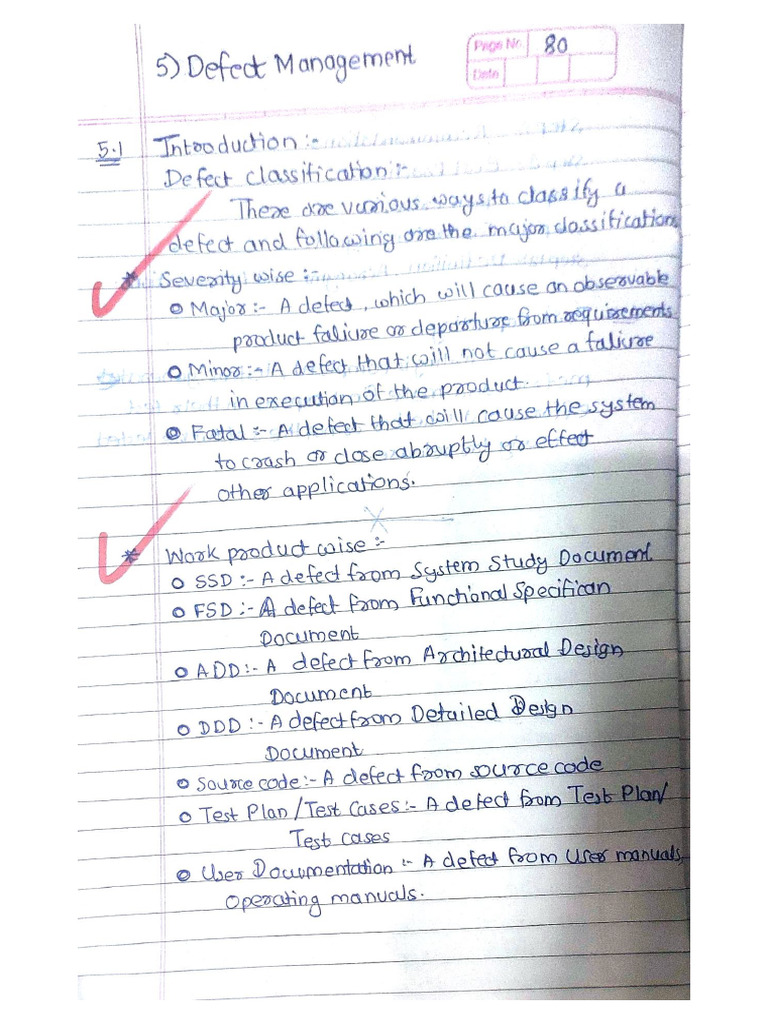 5) Defect Management
Page No. 80
Date
5.1 Introduction :-
Defect classification :-
There are various ways to classify a
defect and following are the major classification
* Severity wise :-
o Major :- A defect, which will cause an observable
product faliure or departure from requirements
o Minor :- A defect that will not cause a faliure
in execution of the product.
o Fatal :- A defect that will cause the system
to crash or close abruptly or effect
other applications.
* Work product wise :-
o SSD :- A defect from System Study Document
o FSD :- A defect from Functional Specifican
Document
o ADD :- A defect from Architectural Design
Document
o DDD :- A defect from Detailed Design
Document
o Source code :- A defect from source code
o Test Plan / Test Cases :- A defect from Test Plan/
Test cases
o User Documentation :- A defect from User manuals,
operating manuals.